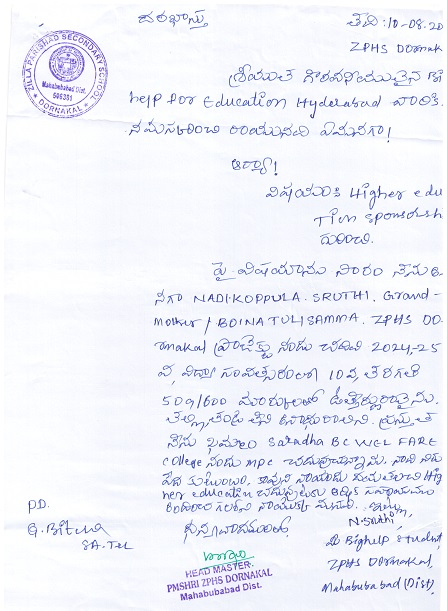 దరఖాస్తు
తేది: 10-08-20
ZPHS Dornak
ZILLA PARISHAD SECONDARY SCHOOL
Mahabubabad Dist.
506381
DORNAKAL
శ్రీయుత గౌరవనీయులైన Bi
help for Education Hyderabad వారికి
నమస్కరించి వ్రాయునది ఏమనగా!
ఆర్యా!
విషయం Higher edu
Tion Sponsorshi
గురించి.
పై విషయాను సారం నేను
నగా NADIKOPPULA. SRUTHI. Grand-
Mother / BOINA TULISAMMA. ZPHS DO-
rnakal నందు చదివి 2024-25
వ, విద్యా సంవత్సరంలో 10వ, తరగతి
509/600 మార్కులతో ఉత్తీర్ణురాలైను.
తల్లి తండ్రి లేని అనాథురాలిని. ప్రస్తుత
నేను ఖమ్మం Saradha BC WEL FARE
College నందు mpc చదువుచున్నాను. నాది నిరు
పేద కుటుంబం. కావున నాయందు దయతలచి Hig
her education సహాయం
ఇట్లు,
P.D.
G. 
SA. Tel
ధన్యవాదములతో
N. Sruthi
మీ Bighelp Student,
ZPHS Dornakal,
Mahabubabad (Dist).
HEAD MASTER
PMSHRI ZPHS DORNAKAL
Mahabubabad Dist.